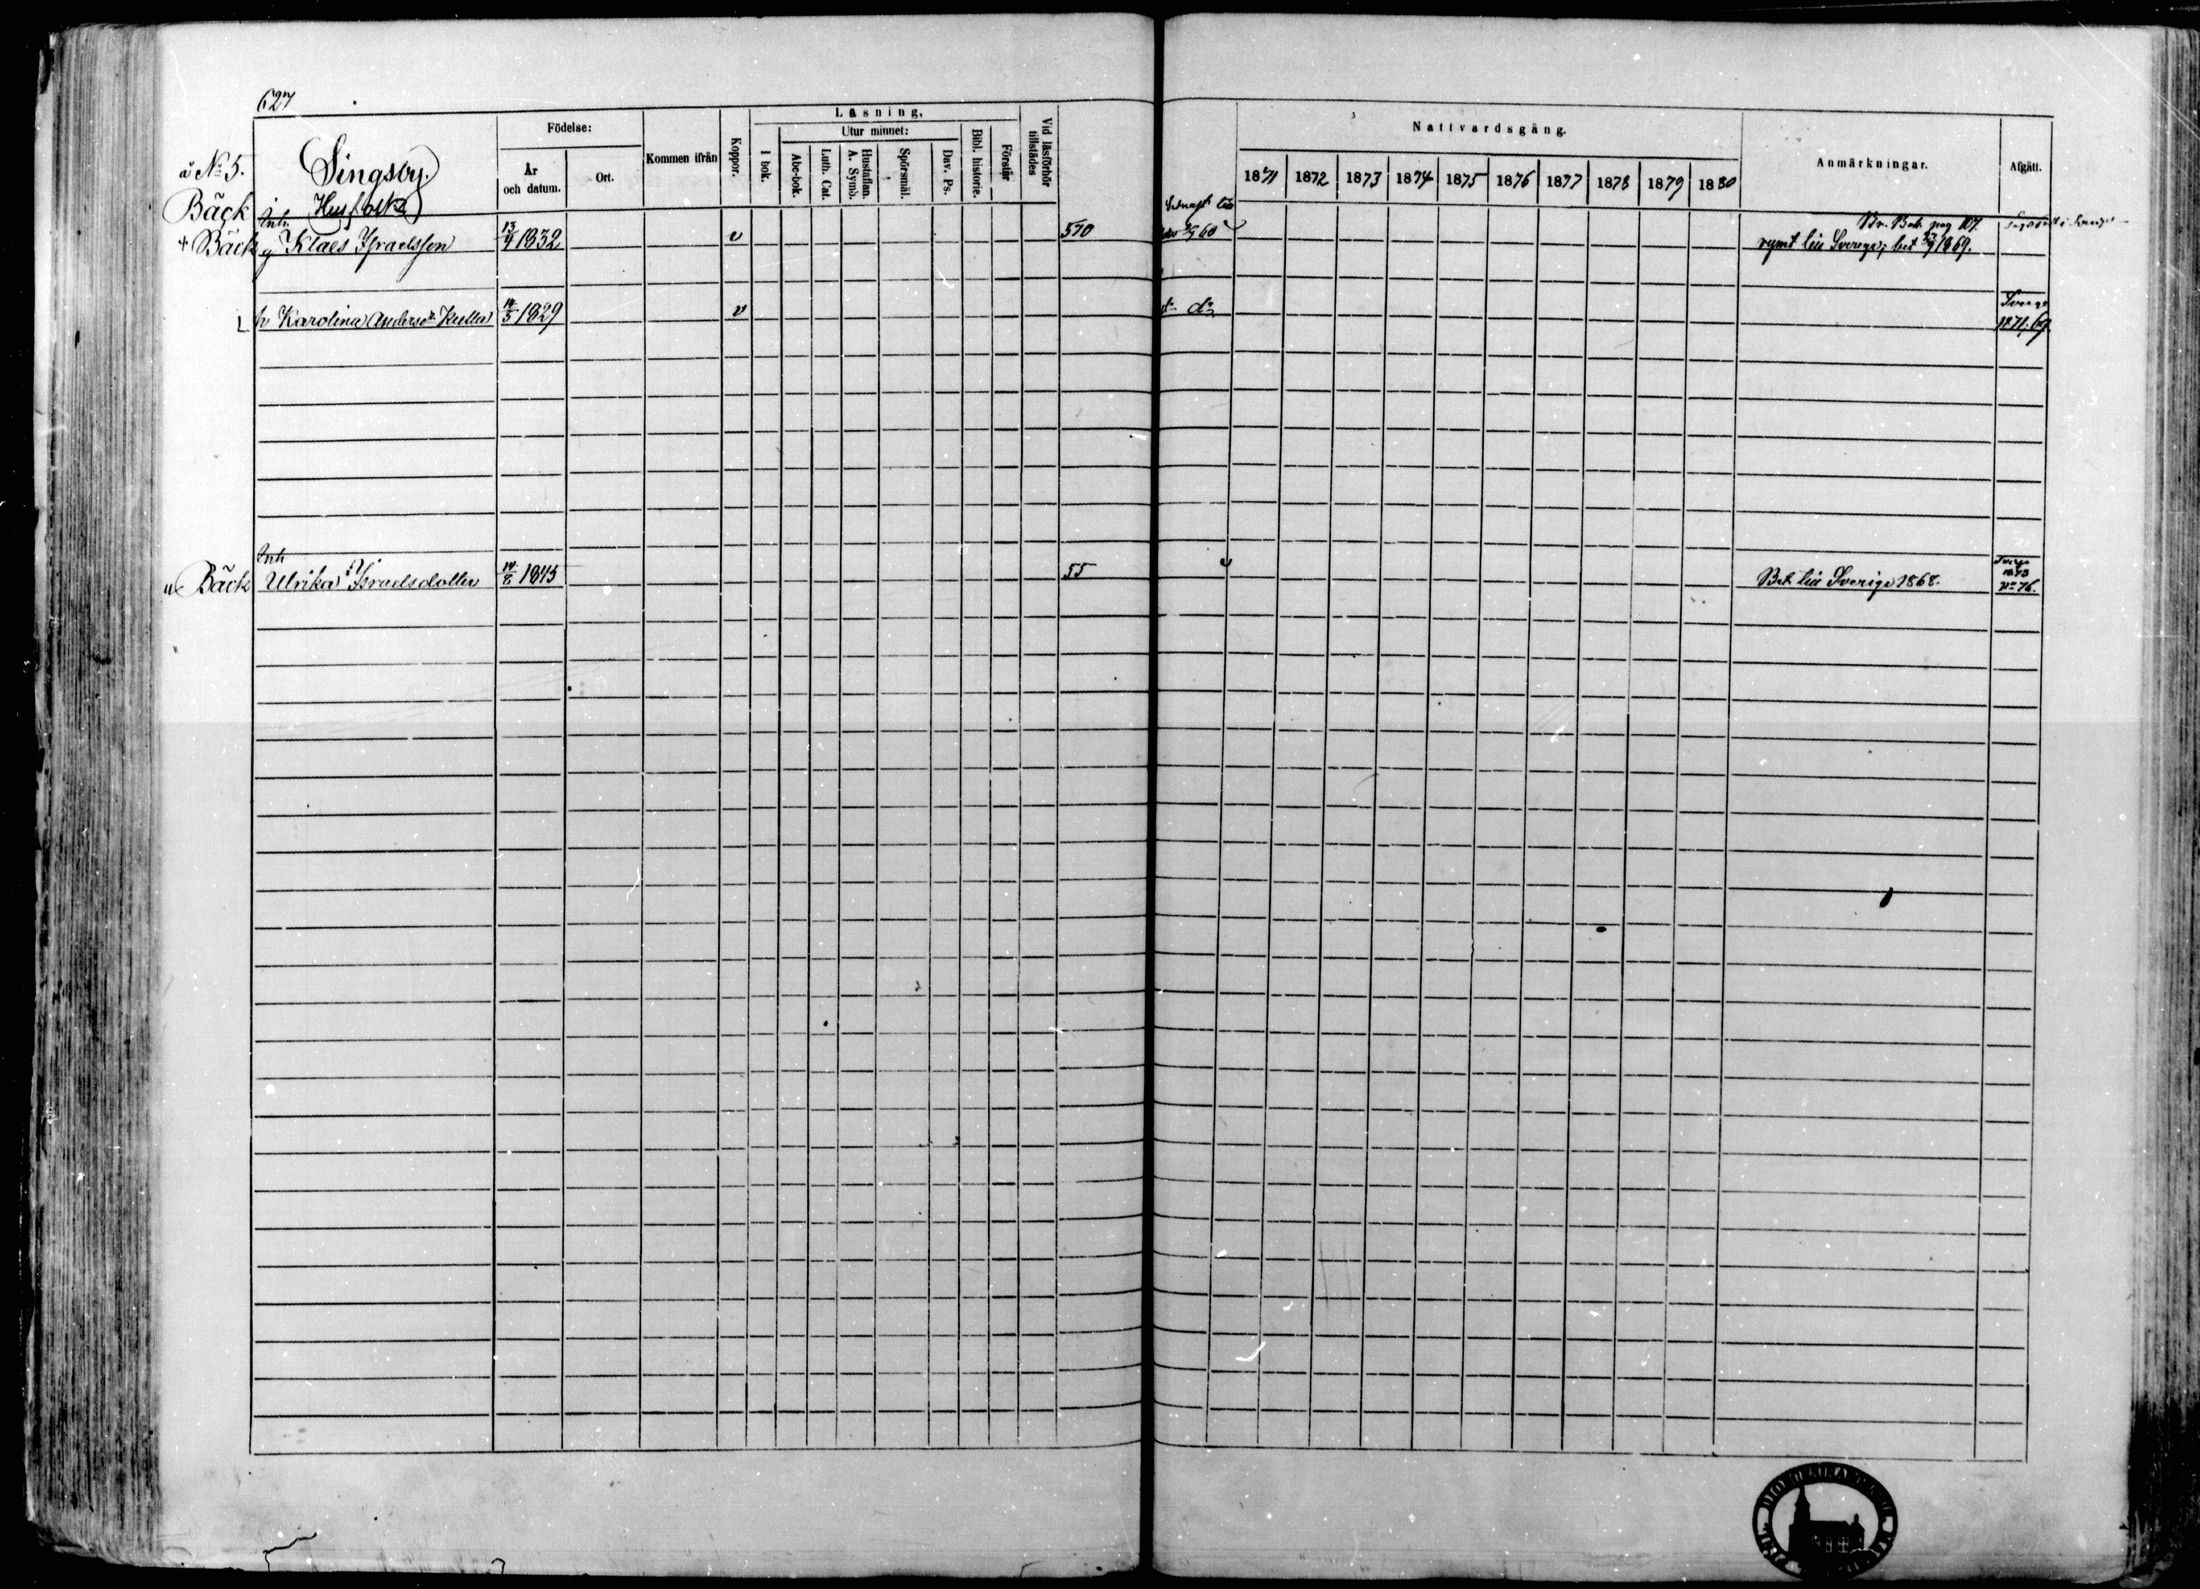 627
Läsning,
Födelse:
Utur minnet:
Vid läsförhör tillstädes
Nattvardsgång.
å No 5.
Singsby.
Husfolk
År och datum.
Ort.
Kommen ifrån
Koppor.
I bok.
Abc-bok.
Luth. Cat.
Hustaflan. A. Symb.
Spörsmål.
Dav. Ps.
Bibl. historie.
Förstår
1871 1872 1873 1874 1875 1876 1877 1878 1879 1880
Anmärkningar.
Afgått.
Bäck
Inh.
+ Bäck g Klaes Israelsson 13/4 1832 v 570
pag 107.
rymt till Sverige; bet 1869.
h Karolina Andersdr 14/5 1829 v do do
Sverige
1871, 69.
Inh
Bäck Ulrika Israelsdotter 14/8 1845 55 Bet. till Sverige 1868.
Sverge
1873
no 76.